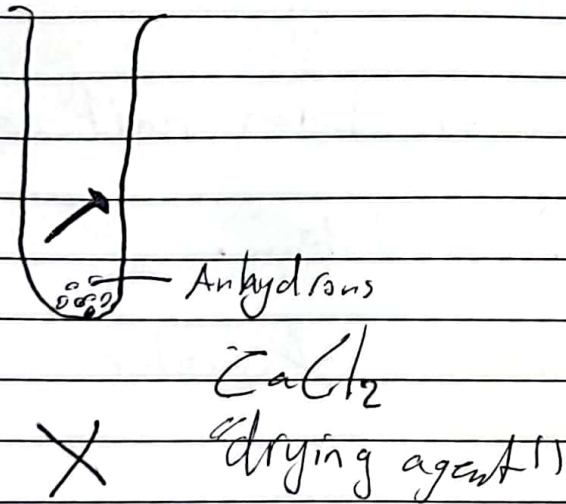 Anhydrous
CaCl2
"drying agent"